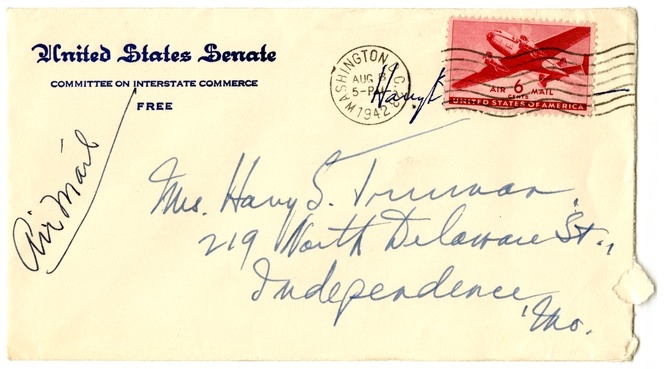 United States Senate
COMMITTEE ON INTERSTATE COMMERCE
FREE
WASHINGTON, D.C.
AUG 8
5-PM
1942
AIR 6 MAIL
CENTS
UNITED STATES OF AMERICA
Harry
Air Mail
Mrs. Harry S. Truman,
219 North Delaware St.,
Independence,
Mo.